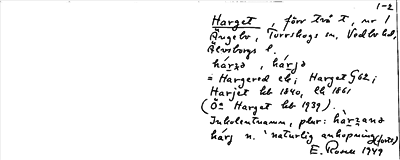 1-2
Harget, förr två t, nr 1
Ängebo, Torrskogs sn, Vedbo hd,
Älvsborgs l.
hárzə, hárjə
= Hargered eb; Harget G62;
Harjet hb 1840, lb 1861
(Ö= Harget hb 1939).
Inkolentnamn, plur: hàrzanə
hárj n. 'naturlig anhopning (förts)
E. Rosell 1949